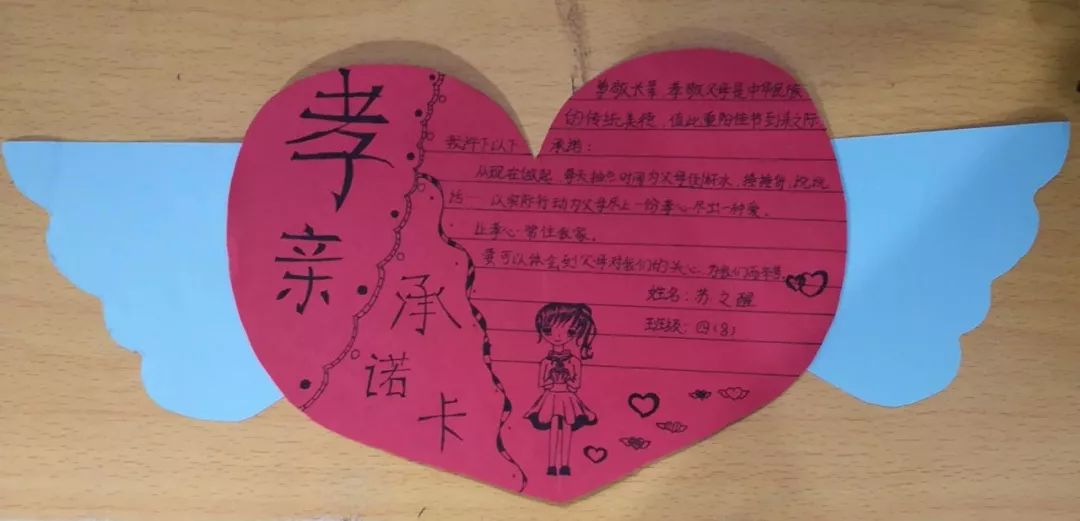 孝亲
承诺卡
尊敬长辈,孝敬父母是中华民族
的传统美德,值此重阳佳节到来之际
我许下以下承诺:
从现在做起,每天抽点时间为父母倒杯水,捶捶背,说说
话……以实际行动为父母尽上一份孝心尽出一种爱。
让孝心常住我家。
要可以体会到父母对我们的关心,为我们而
姓名:苏之醒
班级:四(8)